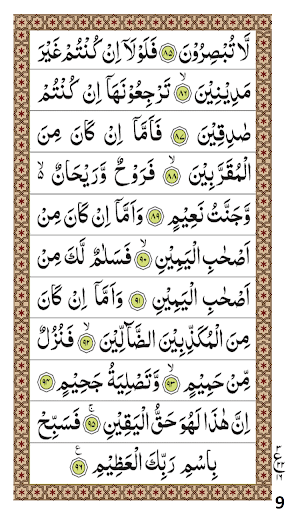 لَّا تُبْصِرُوْنَ ﴿۸۵﴾ فَلَوْلَاۤ اِنْ كُنْتُمْ غَيْرَ
مَدِيْنِيْنَ ۙ﴿۸۶﴾ تَرْجِعُوْنَهَاۤ اِنْ كُنْتُمْ
صٰدِقِيْنَ ﴿۸۷﴾ فَاَمَّاۤ اِنْ كَانَ مِنَ
الْمُقَرَّبِيْنَ ۙ﴿۸۸﴾ فَرَوْحٌ وَّرَيْحَانٌ ۙ۬
وَّجَنَّتُ نَعِيْمٍ ﴿۸۹﴾ وَاَمَّاۤ اِنْ كَانَ مِنْ
اَصْحٰبِ الْيَمِيْنِ ۙ﴿۹۰﴾ فَسَلٰمٌ لَّكَ مِنْ
اَصْحٰبِ الْيَمِيْنِ ﴿۹۱﴾ وَاَمَّاۤ اِنْ كَانَ
مِنَ الْمُكَذِّبِيْنَ الضَّآلِّيْنَ ۙ﴿۹۲﴾ فَنُزُلٌ
مِّنْ حَمِيْمٍ ۙ﴿۹۳﴾ وَّتَصْلِيَةُ جَحِيْمٍ ﴿۹۴﴾
اِنَّ هٰذَا لَهُوَ حَقُّ الْيَقِيْنِ ۚ﴿۹۵﴾ فَسَبِّحْ
بِاسْمِ رَبِّكَ الْعَظِيْمِ ﴿۹۶﴾
9